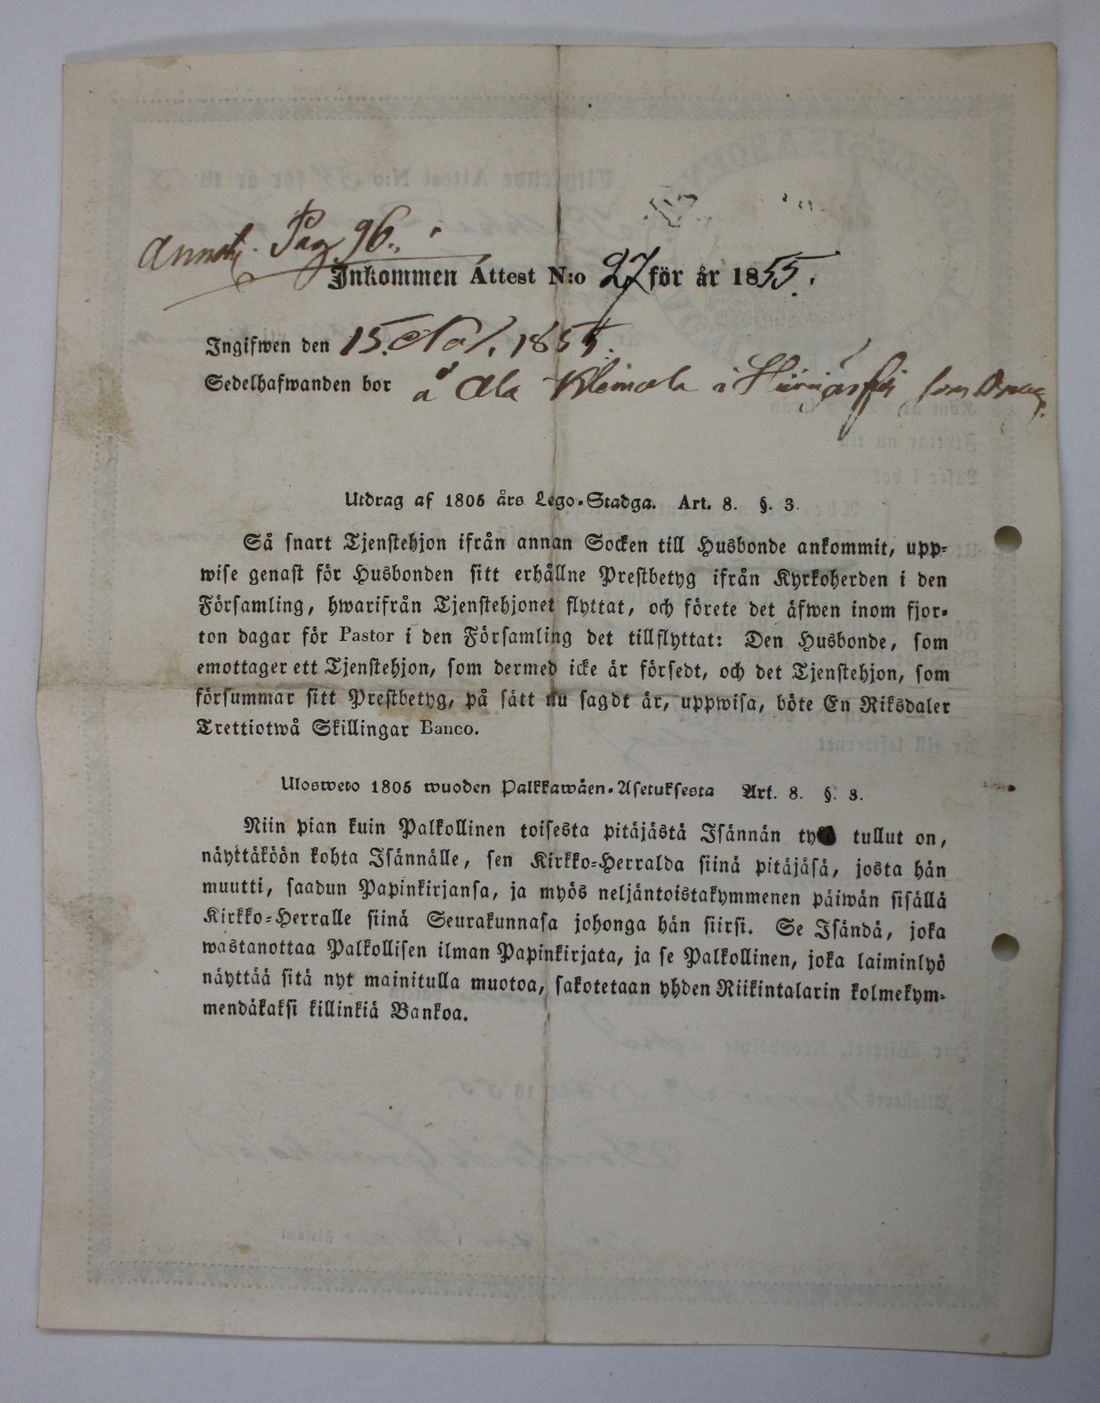 Annot. Pag 96.
Inkommen Attest N:o 27 för år 1855.
Ingifwen den 15. Nov. 1855.
Sedelhafwanden bor å Ala Kleimola i
Utdrag af 1805 års Lego-Stadga. Art. 8. §. 3.
Så snart Tjenstehjon ifrån annan Socken till Husbonde ankommit, upp-
wise genast för Husbonden sitt erhållne Prestbetyg ifrån Kyrkoherden i den
Församling, hwarifrån Tjenstehjonet flyttat, och förete det äfwen inom fjor-
ton dagar för Pastor i den Församling det tillflyttat: Den Husbonde, som
emottager ett Tjenstehjon, som dermed icke är försedt, och det Tjenstehjon, som
försummar sitt Prestbetyg, på sätt nu sagdt är, uppwisa, böte En Riksdaler
Trettiotwå Skillingar Banco.
Ulosweto 1805 wuoden Palkkawäen-Asetuksesta Art. 8. §. 3.
Niin pian kuin Palkollinen toisesta pitäjästä Isännän työ tullut on,
näyttäköön kohta Isännälle, sen Kirkko-Herralda siinä pitäjäsä, josta hän
muutti, saadun Papinkirjansa, ja myös neljäntoistakymmenen päiwän sisällä
Kirkko-Herralle siinä Seurakunnasa johonga hän siirsi. Se Isändä, joka
wastanottaa Palkollisen ilman Papinkirjata, ja se Palkollinen, joka laiminlyö
näyttää sitä nyt mainitulla muotoa, sakotetaan yhden Riikintalarin kolmekym-
mendäkaksi killinkiä Bankoa.